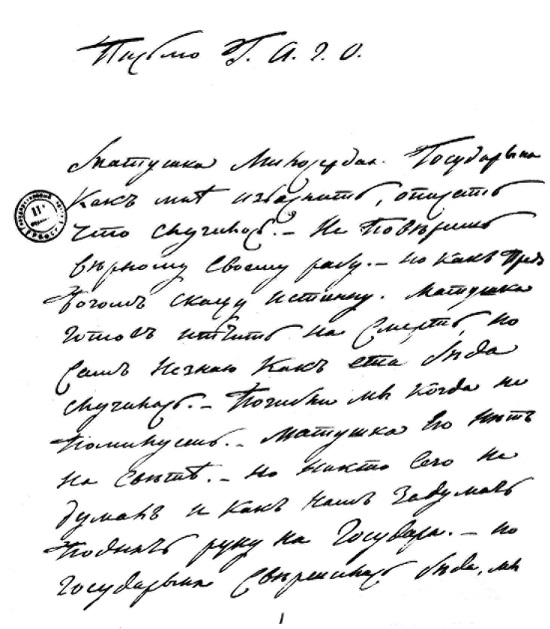 Письмо Г. А. Г. О.
Матушка Милосердая Государыня
Какъ мнѣ изъяснить, описать
что случилось? – Не повѣришь
вѣрному своему рабу. – но какъ предъ
Богомъ скажу истинну. Матушка
готовъ иттить на смерть, но
самъ не знаю какъ ета бѣда
случилась. – Погибли мы когда не
помилуешь. – Матушка его нѣтъ
на свѣтѣ. – Но никто сего не
думалъ и какъ намъ задумать
поднять руку на Государя. – но
Государыня свѣршилась бѣда, мы